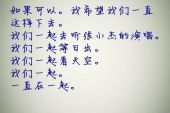 如果可以。我希望我们一直
这样下去。
我们一起去听张小杰的演唱。
我们一起等日出。
我们一起看天空。
我们一起。
一直在一起。